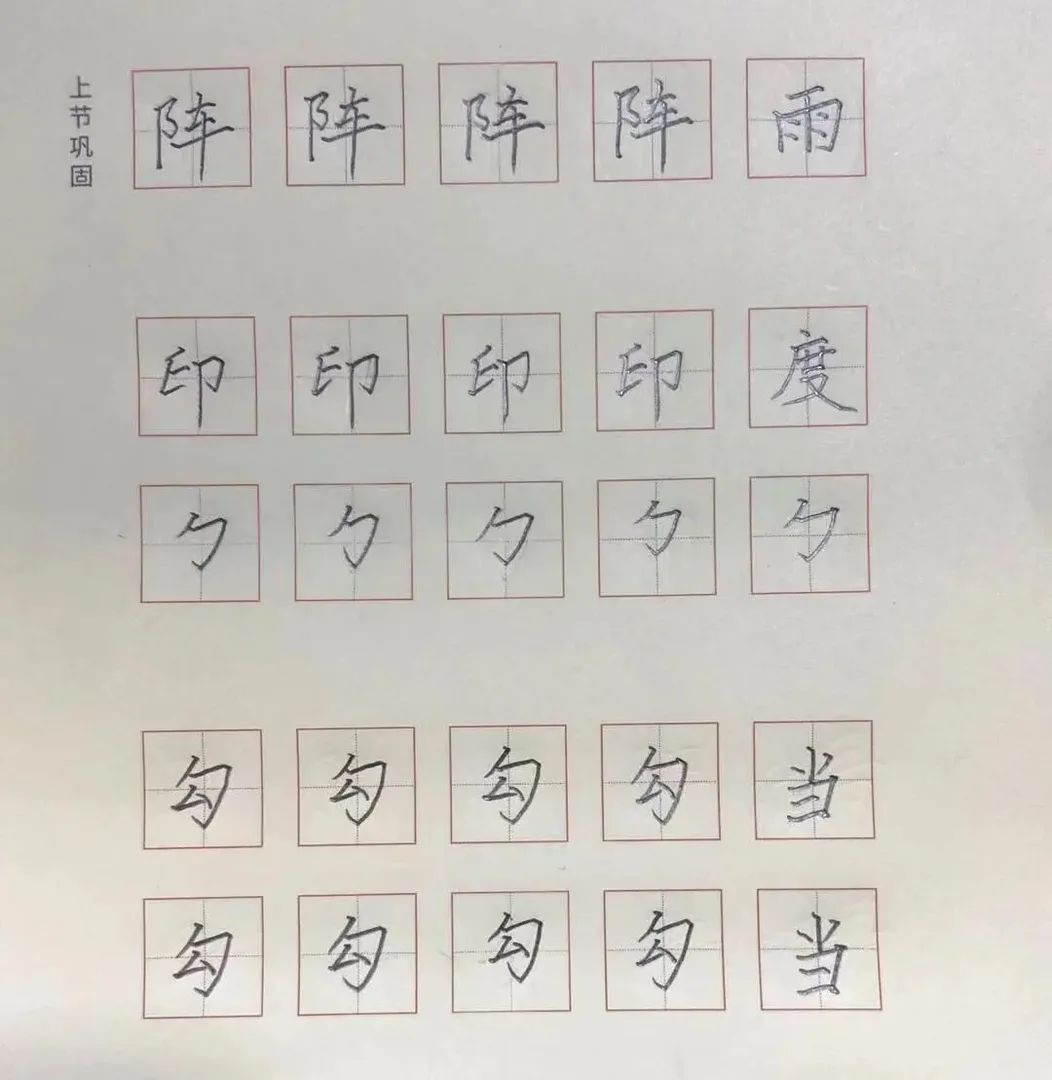 上节巩固
阵 阵 阵 阵 雨
印 印 印 印 度
勹 勹 勹 勹 勹
勾 勾 勾 勾 当
勾 勾 勾 勾 当